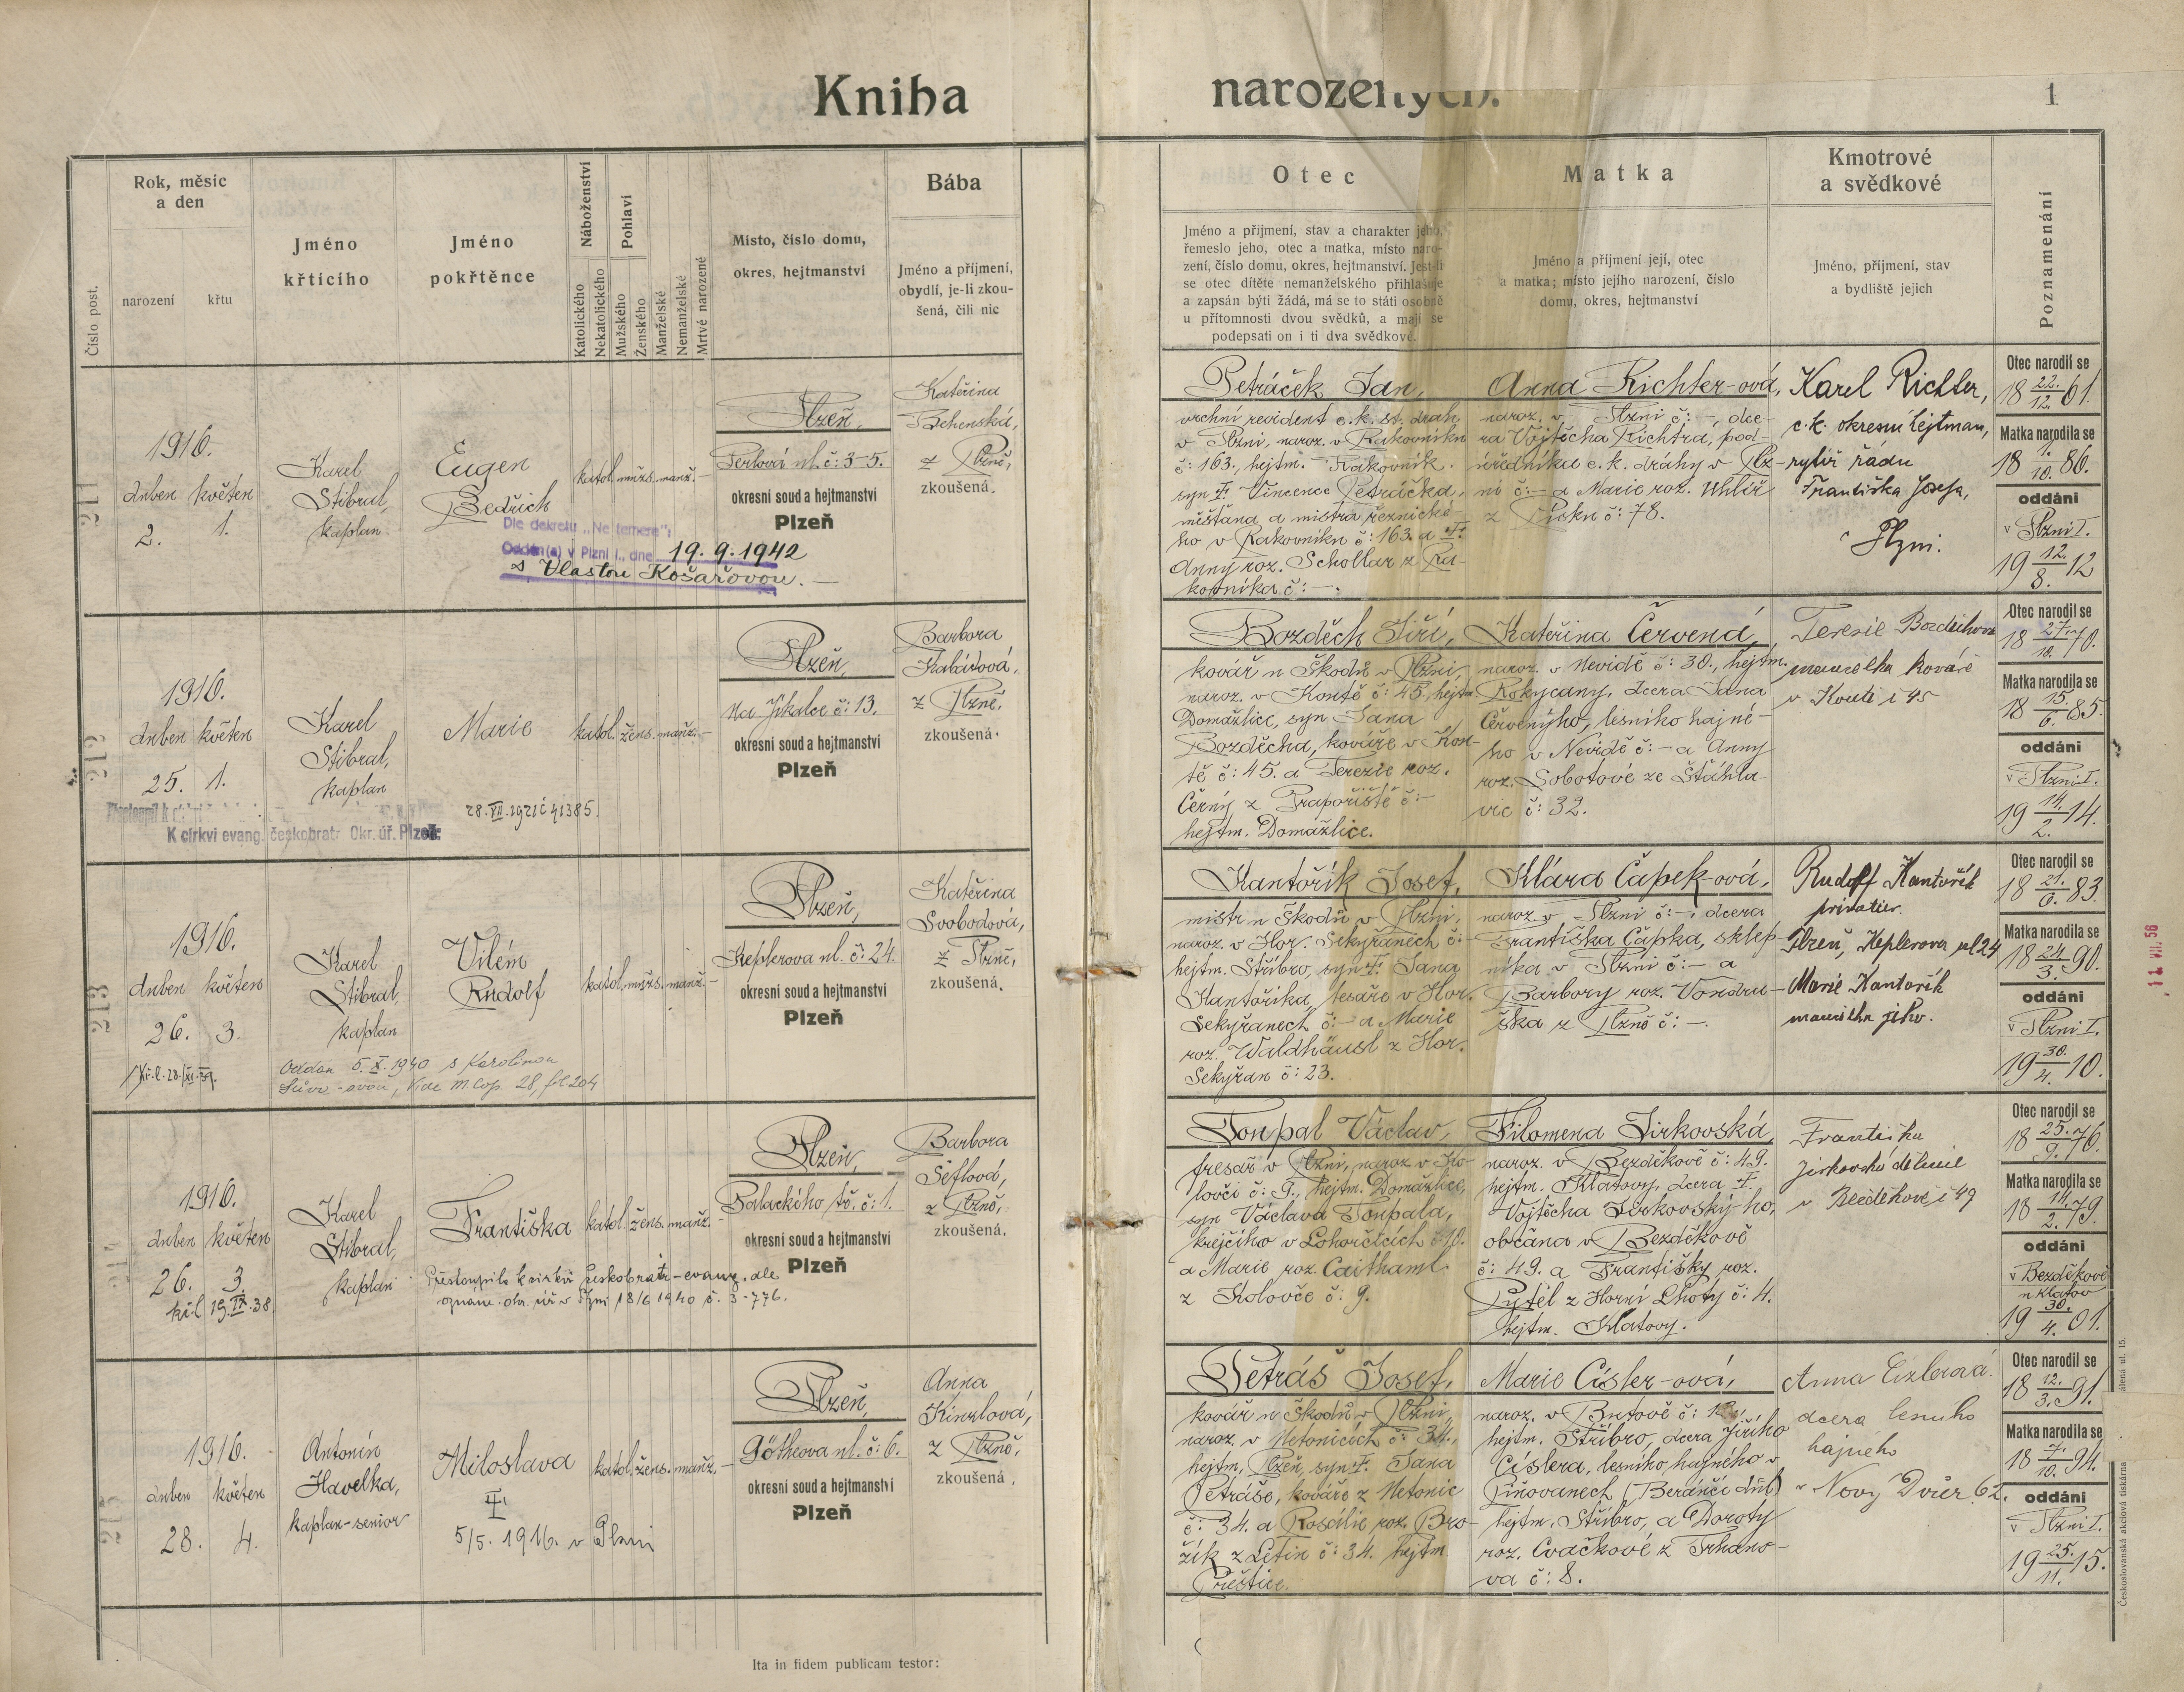 Kniha narozených.
1
Číslo post.
Rok, měsíc
a den
narození
křtu
Jméno
křticího
Jméno
pokřtěnce
Náboženství
Katolického
Nekatolického
Pohlaví
Mužského
Ženského
Manželské
Nemanželské
Mrtvé narozené
Místo, číslo domu,
okres, hejtmanství
Bába
Jméno a příjmení,
obydlí, je-li zkou-
šená, čili nic
Otec
Jméno a příjmení, stav a charakter jeho,
řemeslo jeho, otec a matka, místo naro-
zení, číslo domu, okres, hejtmanství. Jest-li
se otec dítěte nemanželského přihlašuje
a zapsán býti žádá, má se to státi osobně
u přítomnosti dvou svědků, a mají se
podepsati on i ti dva svědkové.
Matka
Jméno a příjmení její, otec
a matka; místo jejího narození, číslo
domu, okres, hejtmanství
Kmotrové
a svědkové
Jméno, příjmení, stav
a bydliště jejich
Poznamenání
211
1916.
duben květen
2. 1.
Karel
Stibral,
kaplan
Eugen
Bedřich
Dle dekretu „Ne temere":
Oddán(a) v Plzni I., dne 19.9.1942
s Vlastou Košařovou.
katol. mužs. manž.
Plzeň,
Perlová ul. č: 3-5.
okresní soud a hejtmanství
Plzeň
Kateřina
z Plzně,
zkoušená.
Petráček Jan,
vrchní revident c. k. st. drah
v Plzni, naroz. v Rakovníku
č: 163., hejtm. Rakovník.
syn † Vincence Petráčka,
měšťana a mistra řeznické-
ho v Rakovníku č: 163. a †
Anny roz. Schollar z Ra-
kovníka č: —.
Anna Richter-ová,
naroz. v Plzni č: —, dce-
ra Vojtěcha Richtra, pod-
úředníka c. k. dráhy v Plz-
ni č: — a Marie roz. Uhlíř
z Písku č: 78.
Karel Richter,
c. k. okresní hejtman,
rytíř řádu
Františka Josefa,
v Plzni.
Otec narodil se
18 22./12. 61.
Matka narodila se
18 1./10. 86.
oddáni
v Plzni I.
19 12./8. 12
212
1916.
duben květen
25. 1.
Karel
Stibral,
kaplan
Marie
K církvi evang. českobratr. Okr. úř. Plzeň:
28.VII.1921 č 41385
katol. žens. manž.
Plzeň,
Na Jíkalce č: 13.
okresní soud a hejtmanství
Plzeň
Barbora
Kabátová,
z Plzně,
zkoušená.
Bozděch Jiří,
kovář u Škodů v Plzni,
naroz. v Koutě č: 45, hejtm.
Domažlice, syn Jana
Bozděcha, kováře v Kou-
tě č: 45. a Terezie roz.
Černý z Prapořiště č: —
hejtm. Domažlice.
Kateřina Červená,
naroz. v Nevidě č: 30., hejtm.
Rokycany, dcera Jana
Červenýho, lesního hajné-
ho v Nevidě č: — a Anny
roz. Sobotové ze Štáhla-
vic č: 32.
Terezie Bozděchová
manželka kováře
v Koutě č 45
Otec narodil se
18 27./10. 70.
Matka narodila se
18 15./6. 85.
oddáni
v Plzni I.
19 14./2. 14.
213
1916.
duben květen
26. 3.
Kř. l. 28./XI. 39.
Karel
Stibral,
kaplan
Vilém
Rudolf
Oddán 5. X. 1940 s Karolinou
katol. mužs. manž.
Plzeň,
Keplerova ul. č: 24.
okresní soud a hejtmanství
Plzeň
Kateřina
Svobodová,
z Plzně,
zkoušená.
Kantořík Josef,
mistr u Škodů v Plzni,
naroz. v Hor. Sekyřanech č: —
hejtm. Stříbro, syn † Jana
Kantoříka, tesaře v Hor.
Sekyřanech č: — a Marie
roz. Waldhäusl z Hor.
Sekyřan č: 23.
Klára Čapek-ová,
naroz. v Plzni č: —, dcera
Františka Čapka, sklep-
níka v Plzni č: — a
Barbory roz. Vondru-
ška z Plzně č: —.
Rudolf Kantořík
privatier.
Plzeň, Keplerova ul 24
Marie Kantořík
manželka jeho.
Otec narodil se
18 21./6. 83.
Matka narodila se
18 24/3. 90.
oddáni
v Plzni I.
19 30./4. 10.
11 VII. 56
214
1916.
duben květen
26. 3.
kř. l. 19.IX.38.
Karel
Stibral,
kaplan
Františka
Přestoupila k církvi českobratr-evang. dle
oznám. okr. úř. v Plzni 18/6 1940 č. 3-776.
katol. žens. manž.
Plzeň,
Palackého tř. č: 1.
okresní soud a hejtmanství
Plzeň
Barbora
Šeflová,
z Plzně,
zkoušená.
Toupal Václav,
tresař v Plzni, naroz. v Ko-
lovči č: 9., hejtm. Domažlice,
syn Václava Toupala,
krejčího v Lohorčicích č: 10.
a Marie roz. Caithaml
z Kolovče č: 9.
Filomena Jirkovská
naroz. v Bezděkově č: 49.
hejtm. Klatovy, dcera †
Vojtěcha Jirkovský-ho,
občana v Bezděkově
č: 49. a Františky roz.
Pytel z Horní Lhoty č: 4.
hejtm. Klatovy.
Františka
Jirkovská dělnice
v Bezděkově č 49
Otec narodil se
18 25./9. 76.
Matka narodila se
18 14./2. 79.
oddáni
v Bezděkově
u Klatov
19 30./4. 01.
215
1916.
duben květen
28. 4.
Antonín
Havelka,
kaplan-senior
Miloslava
†
5/5. 1916. v Plzni
katol. žens. manž.
Plzeň,
Götheova ul. č: 6.
okresní soud a hejtmanství
Plzeň
Anna
Kinzlová,
z Plzně,
zkoušená.
Petráš Josef,
kovář u Škodů v Plzni,
naroz. v Netonicích č: 34.,
hejtm. Plzeň, syn † Jana
Petráše, kováře z Netonic
č: 34. a Rosálie roz. Bro-
žík z Letin č: 34. hejtm.
Přeštice.
Marie Císler-ová,
hejtm. Stříbro, dcera Jiřího
Císlera, lesního hajného v
Piňovanech (Berančí dvůr)
hejtm. Stříbro, a Doroty
roz. Cvačkové z Trhano-
va č: 8.
Anna Cizlerová
dcera lesního
hajného
v Nový Dvůr 62.
Otec narodil se
18 12./3. 91.
Matka narodila se
18 7./10. 94.
oddáni
v Plzni I.
19 25./11. 15.
Ita in fidem publicam testor:
Československá akciová tiskárna